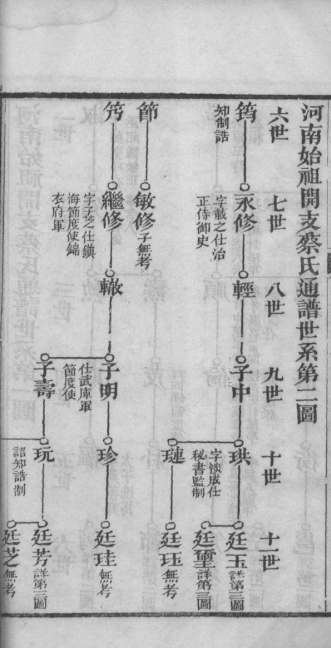 河南始祖開支蔡氏通譜世系第二圖
六世
七世
八世
九世
十世
十一世
筠
知制誥
永修
字載之仕治
正侍御史
輕
子中
珙
秘書監制
廷玉
詳第三圖
廷璽
詳第三圖
璉
廷珏無考
節
敏修
子無考
竻
繼修
字子之仕鎮
海節度使錦
衣府軍
轍
子明
仕武庫軍
節度使
珍
廷珪無考
子壽
玩
認知誥制
廷芳
詳第三圖
廷芝無考